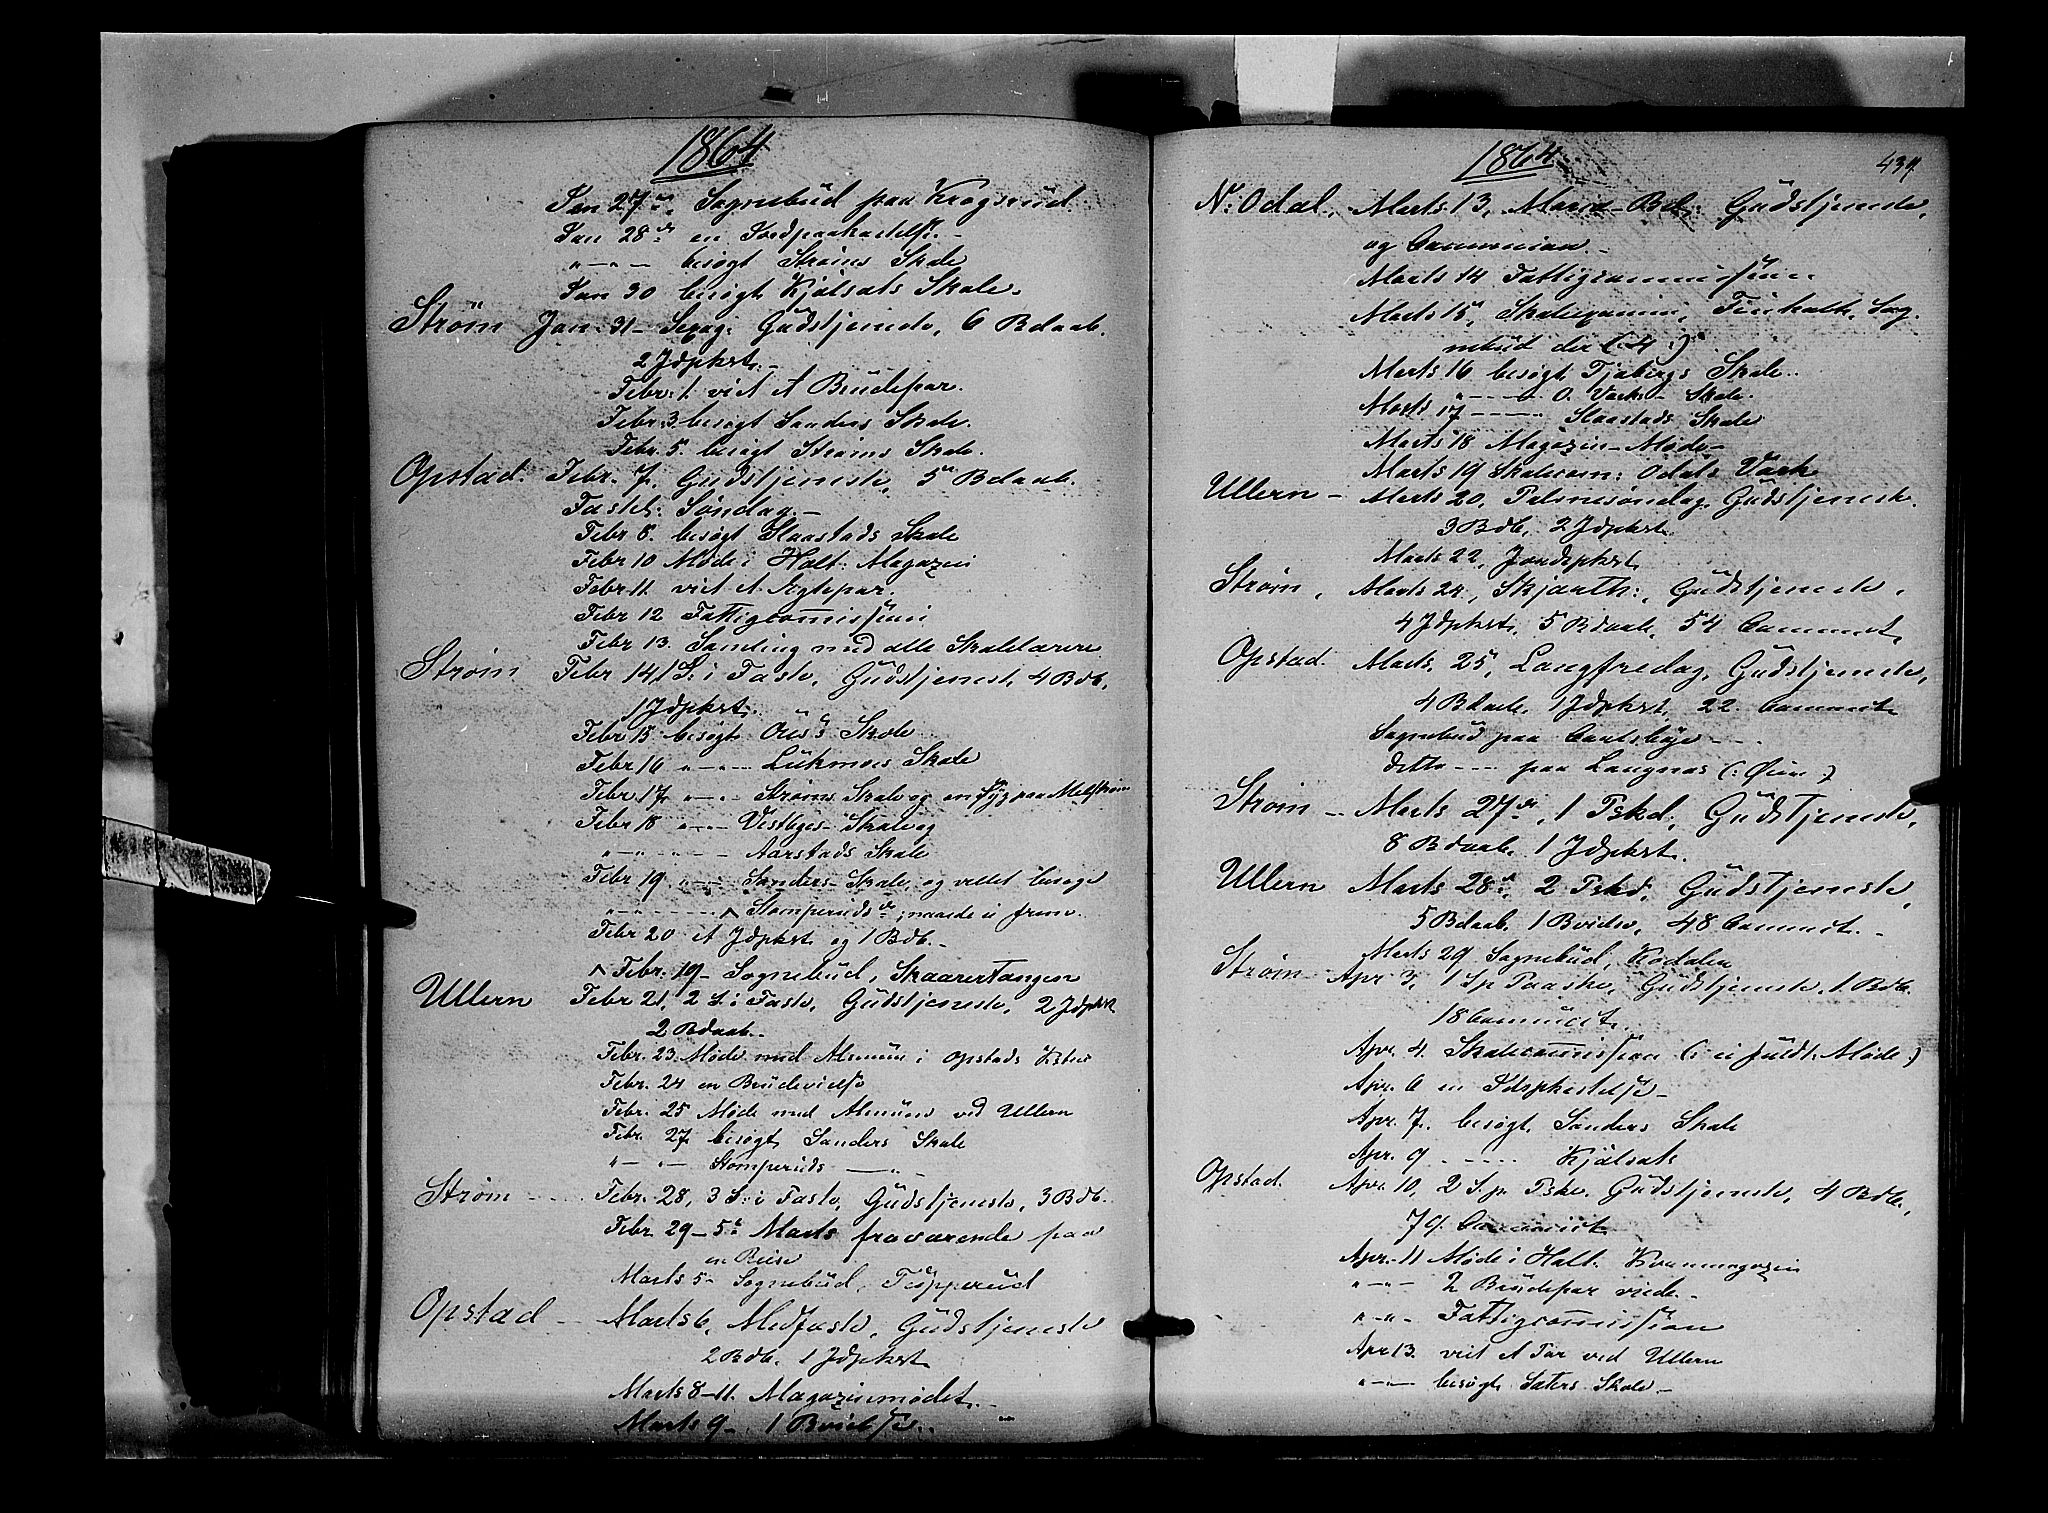 1864
Jan 27de, Sognebud paa Krogsrud
Jan 28de en Jordpaakastelse
" — " — besøgt Strøms Skole
Jan 30 besøgt Kjølsats Skole.
Strøm Jan: 31 — Sexag: Gudstjeneste, 6 Bdaab.
2 Jdpkst. —
Febr: 1. viet et Brudepar.
Febr: 3. besøgt Sanders Skole.
Febr. 5. besøgt Strøms Skole.
Opstad. Febr. 7, Gudstjeneste, 5 Bdaab.
Fastel: Søndag. —
Febr 8. besøgt Slaastads Skole
Febr 10 Møde i Holt: Magazin
Febr 11. viet et Ægtepar.
Febr 12 Fattigcomission
Febr 13. Samling med alle Skolelærere
Strøm Febr 14, 1 S: i Faste, Gudstjenest, 4 Bdb.
1 Jdpkst.
Febr 15 besøgt Ous's Skole
Febr 16 " — " — Lukmoes Skole
Febr. 17. " — " — Strøms Skole og en Syg paa Melstrøm
Febr 18 " — " — Vestbyes Skole og
" — " — " — " — Aarstads Skole
Febr 19 " — " — Sanders Skole, og villet besøge
" — " — — — Stomperuds do, naaede ei frem.
Febr 20 et Jdpkst og 1 Bdb. —
^ Febr. 19 — Sognebud, Skaarertangen
Ullern Febr 21, 2 S: i Faste, Gudstjeneste, 2 Jdpkst
2 Bdaab. —
Febr. 23. Møde med Almuen i Opstads
Febr. 24 en Brudevielse
Febr. 25 Møde med Almuen ved Ullern
Febr. 27 besøgt Sanders Skole
" — " — Stomperuds — " —
Strøm — Febr. 28, 3 S: i Faste, Gudstjeneste, 3 Bdb.
Febr. 29 — 5te Marts fraværende paa
en Reise
Marts 5 — Sognebud, Tupperud
Opstad — Marts 6, Midfaste, Gudstjeneste
2 Bdb. 1 Jdpkst
Marts 8 — 11. Magazinmødet. —
Marts 9 — 1 Bvielse. —
1864 434
N: Odal. Marts 13, Maria Bd: Gudstjeneste,
og Communion —
Marts 14 Fattigcommission
Marts 15, Skoleexamen, Finholt, Sog-
nebud der (: 4 :)
Marts 16 besøgt Tjabergs Skole.
" — — O. Værks — Skole.
Marts 17 — — — Slaastads Skole
Marts 18 Magazin-Møde —
Marts 19 Skolecom: Odals Værk
Ullern — Marts 20, Palmesøndag, Gudstjeneste.
3 Bdb, 2 Jdpkst.
Marts 22, Jordpkst
Strøm, Marts 24, Skjærth:, Gudstjeneste,
4 Jdpkst, 5 Bdaab, 54 Communict,
Opstad. Marts. 25, Langfredag, Gudstjeneste,
4 Bdaab, 1 Jdpkst, 22 Communict
Sognebud paa
ditto — — paa Langnæs (: :)
Strøm — Marts 27de, 1 Pskd, Gudstjeneste,
8 Bdaab 1 Jdpkst.
Ullern Marts 28de 2 Pskd, Gudstjeneste,
5 Bdaab 1 Bvielse, 48 Communict. —
Marts 29 Sognebud, Kodalen
Strøm — Apr 3, 1 S p Paaske, Gudstjeneste, 1 Bdb.
18 Communict.
Apr. 4. Skolecomission (: ei fuldt Møde :)
Apr. 6 en Jdspkastelse —
Apr. 7. besøgt Sanders Skole
Apr. 9 — — — Kjølsats
Opstad. Apr. 10, 2 S. p. Pske. Gudstjeneste, 4 Bdb,
79 Communict
Apr. 11 Møde i Holt. Kornmagazin
" — " — 2 Brudepar viede. —
" — " — Fattigcomission
Apr 13. viet et Par ved Ullern
" — " — besøgt Sæters Skole —